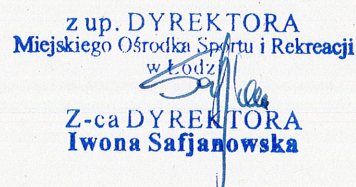 z up. DYREKTORA
Miejskiego Ośrodka Sportu i Rekreacji
w Łodzi
Z-ca DYREKTORA
Iwona Safjanowska